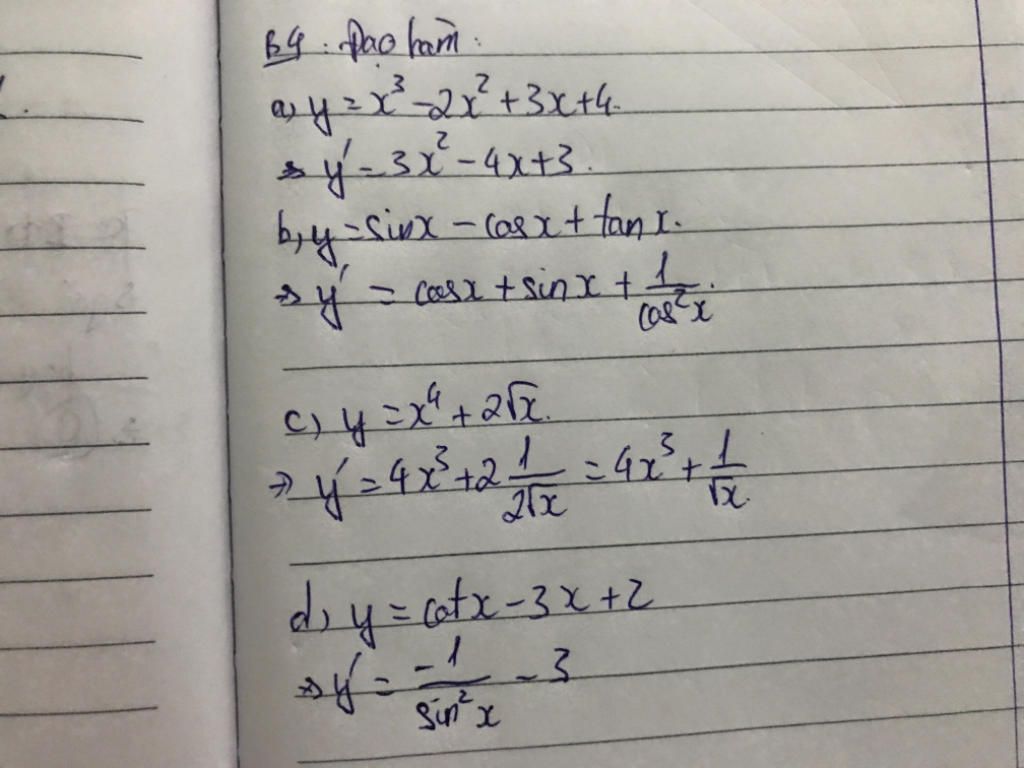 B4: Đạo hàm:
a, y = x³ - 2x² + 3x + 4.
⇒ y' = 3x² - 4x + 3.
b, y = sinx - cosx + tan x.
⇒ y' = cosx + sinx + 1/cos²x.
c) y = x⁴ + 2√x.
⇒ y' = 4x³ + 2 1/2√x = 4x³ + 1/√x.
d) y = cotx - 3x + 2
⇒ y' = -1/sin²x - 3